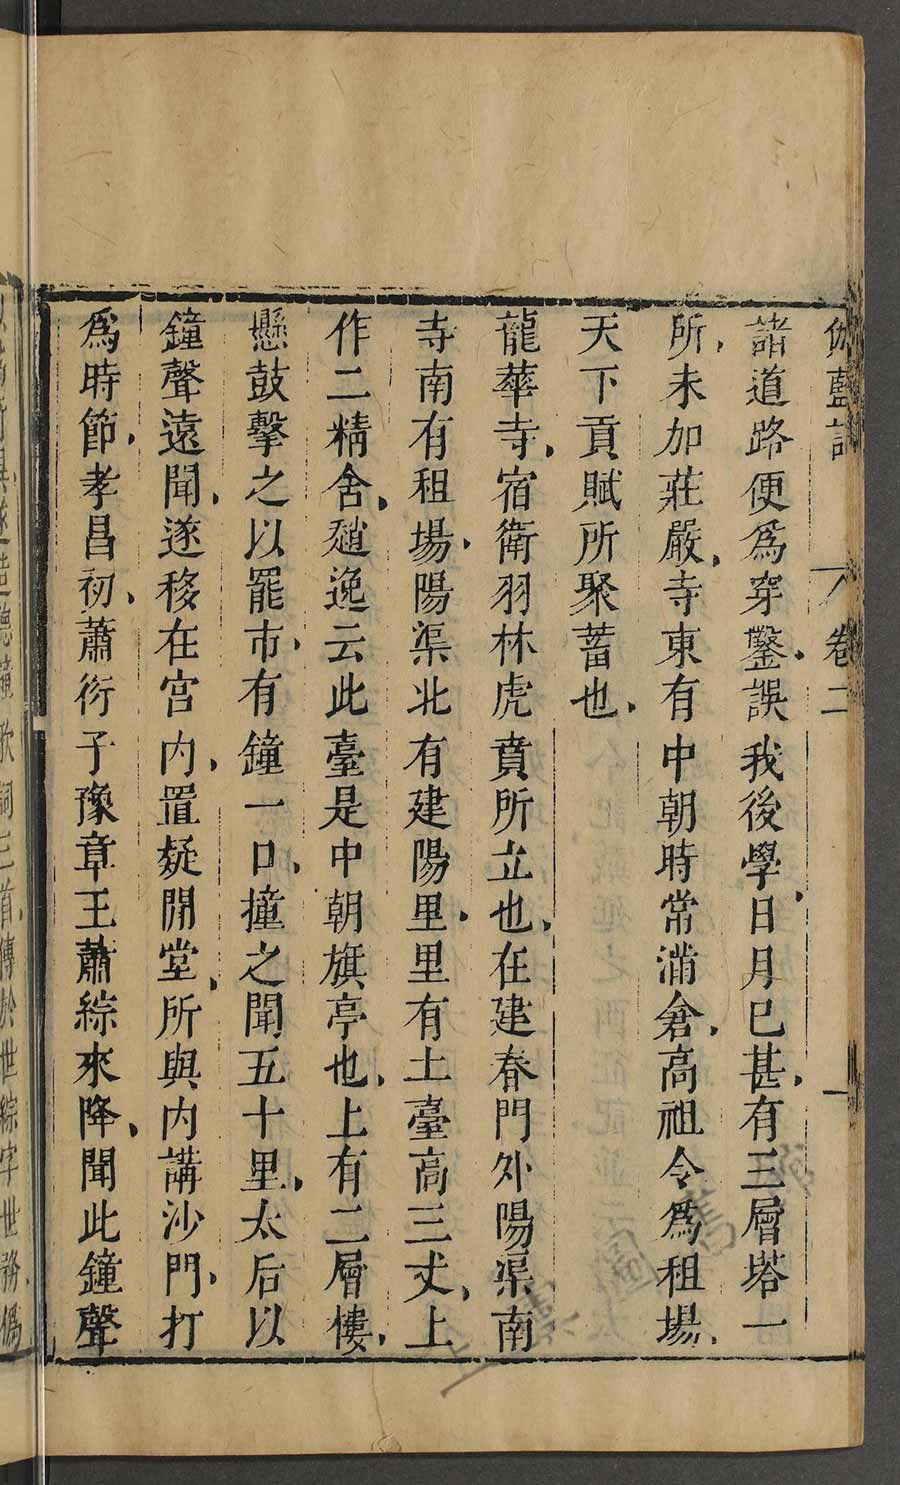 伽藍記 卷二 一
諸道路便爲穿鑿誤我後學日月已甚有三層塔一
所未加莊嚴寺東有中朝時常滿倉高祖令爲租場
天下貢賦所聚蓄也
龍華寺宿衛羽林虎賁所立也在建春門外陽渠南
寺南有租場陽渠北有建陽里里有土臺高三丈上
作二精舍趙逸云此臺是中朝旗亭也上有二層樓
懸鼓擊之以罷市有鐘一口撞之聞五十里太后以
鐘聲遠聞遂移在宮内置凝閒堂所與内講沙門打
爲時節孝昌初蕭衍子豫章王蕭綜來降聞此鐘聲
遂造聽鐘歌詞三首傳於世綜字世務僞